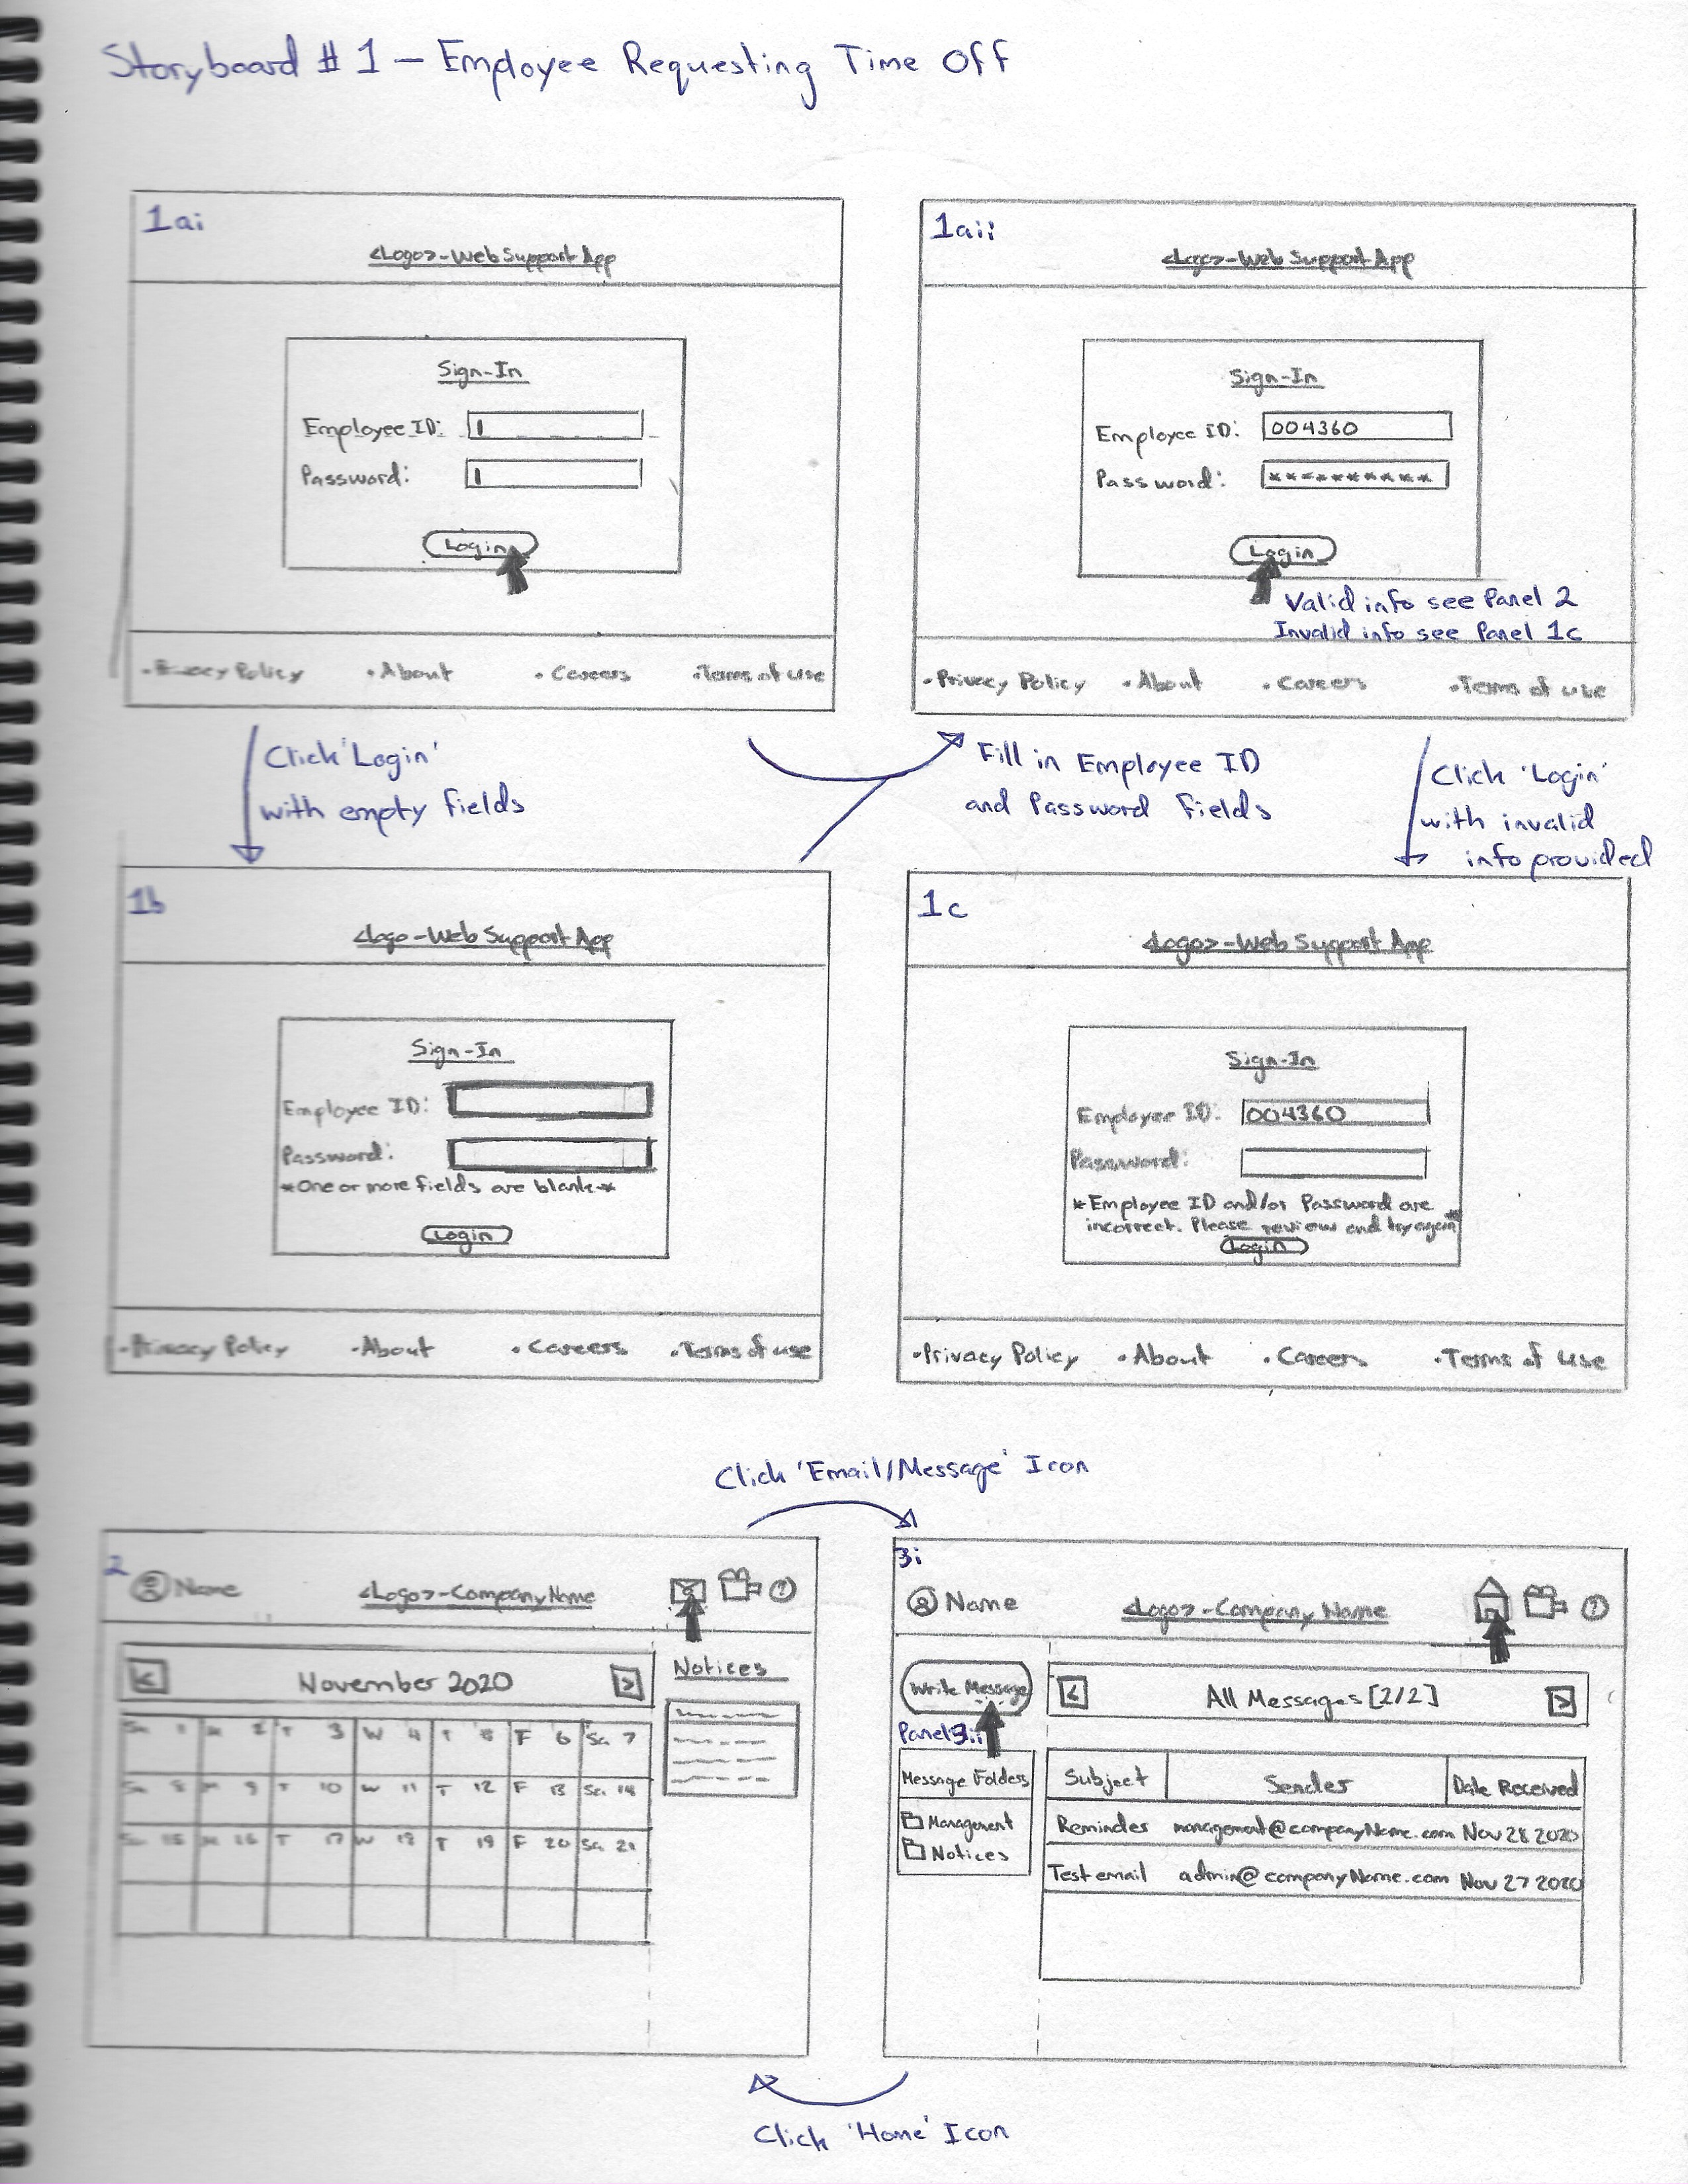 Storyboard # 1 – Employee Requesting Time Off
1ai
<Logo>-Web Support App
Sign-In
Employee ID:
Password:
Login
•Privacy Policy •About •Careers •Terms of Use
1aii
<Logo>-Web Support App
Sign-In
Employee ID: 004360
Password: **********
Login
Valid info see Panel 2
Invalid info see Panel 1c
•Privacy Policy •About •Careers •Terms of use
Click 'Login'
with empty fields
Fill in Employee ID
and Password Fields
Click 'Login'
with invalid
info provided
1b
<Logo-Web Support App
Sign-In
Employee ID:
Password:
*One or more fields are blank*
Login
•Privacy Policy •About •Careers •Terms of use
1c
<Logo>-Web Support App
Sign-In
Employee ID: 004360
Password:
*Employee ID and/or Password are
incorrect. Please review and try again*
Login
•Privacy Policy •About •Careers •Terms of Use
Click 'Email/Message' Icon
2
Name <Logo>-CompanyName ?
< November 2020 >
Su 1 M 2 T 3 W 4 T 5 F 6 Sa 7
Su 8 M 9 T 10 W 11 T 12 F 13 Sa 14
Su 15 M 16 T 17 W 18 T 19 F 20 Sa 21
Notices
3i
Name <Logo>-Company Name ?
Write Message
Panel 3ii
Message Folders
Management
Notices
< All Messages [2/2] >
Subject Sender Date Received
Reminder management@companyName.com Nov 28 2020
Test email admin@companyName.com Nov 27 2020
Click 'Home' Icon